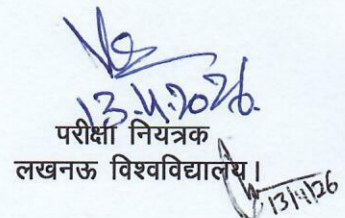 13.4.2026.
परीक्षा नियंत्रक
लखनऊ विश्वविद्यालय।
13/4/26